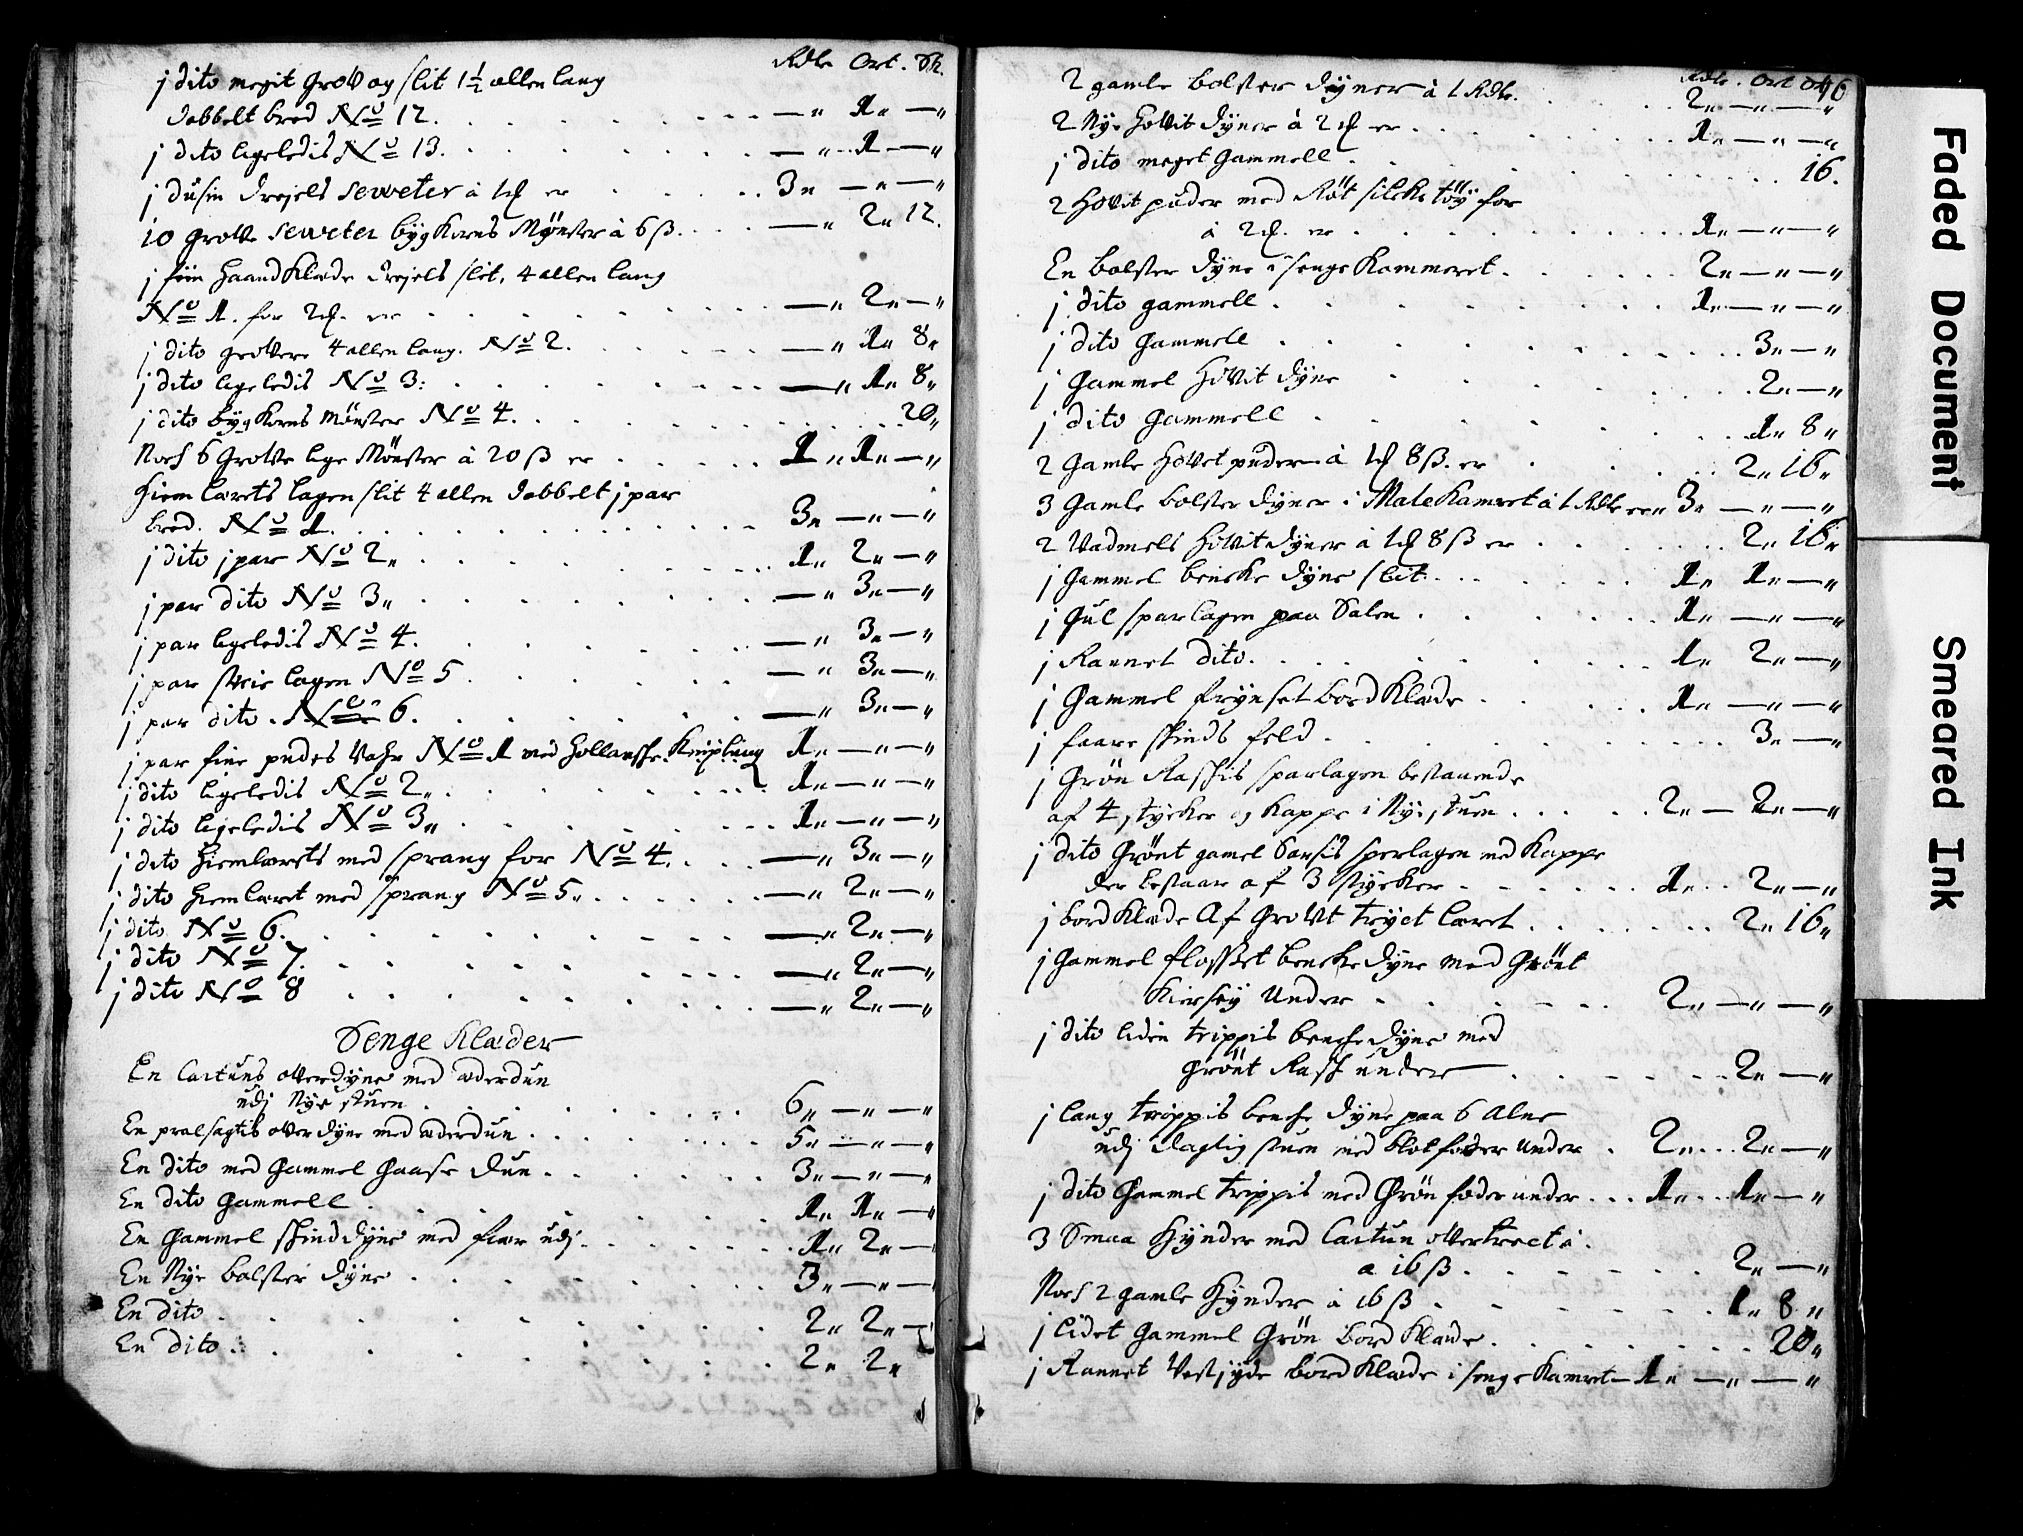 Rdlr Ort. Sk.
j dito megit Grov og slit 1½ allen lang
dobbelt bred No 12. — „ 1„ — „
j dito ligeledis No 13. — „ 1 — „
j dusin Drejels Serveter à 1 ꝺ er 3„ — „ — „
10 grove Serveter byg Korns Mønster à 6 ß. — „ 2„ 12.
j fiin Haand Klæde Drejels slit, 4 allen lang
No 1. for 2 ꝺ. er — „ 2„ — „
j dito grovere 4 allen lang. No 2. — „ 1„ 8„
j dito ligeledis No 3: — „ 1„ 8„
j dito byg Korns Mønster No 4. 20„
Noch 6 Grove lige Mønster à 20 ß er 1„ 1„ — „
Hiem lærets lagen slit 4 allen dobbelt j par
bred. No 1. 3„ — „ — „
j dito j par No 2„ 1„ 2„ — „
j par dito No 3„ — „ 3„ — „
j par ligeledis No 4. — „ 3„ — „
j par strie lagen No 5. — „ 3„ — „
j par dito. No 6. — „ 3„ — „
j par fine pudes Vahr No 1 med Hollansche Knipling 1„ — „ — „
j dito ligeledis No 2„ 1„ — „ — „
j dito ligeledis No 3„ 1„ — „ — „
j dito Hiemlærets med sprang for No 4. — „ 3„ — „
j dito hiemlæret med sprang No 5„ — „ 2„ — „
j dito No 6. — „ 2„ — „
j dito No 7. — „ 2„ — „
j dito No 8 — „ 2„ — „
Senge Klæder
En Cartuns overdyne med æderdun
udj Nye stuen 6„ — „ — „
En overdyne med æderdun 5„ — „ — „
En dito med Gammel Gaase dun 3„ — „ — „
En dito Gammell 1„ 1„ — „
En Gammel skind dyne med fiær udj 1„ 2„ —
En Nye bolster dyne 3„ — „ —
En dito 2„ 2„ —
En dito 2„ 2„
Rdlr. Ort Sk
2 gamle bolster dyner à 1 Rdlr. 2„ — „ — „
2 Nye Hovit dyner à 2 ꝺ er 1„ — „ — „
j dito meget Gammell 16.
2 Hovit puder med Røt silke tøy for
à 2 ꝺ. er 1„ — „ — „
En bolster dyne i senge Kammeret 2„ — „ — „
j dito gammell 1„ — „ — „
j dito Gammell 3„ — „
j Gammel Hovit dyne 2„ — „
j dito Gammell 1„ 8„
2 Gamle Hovet puder à 1 ꝺ 8 ß. er 2„ 16„
3 Gamle bolster dyner i Male Kamret à 1 Rdlr er 3„ — „ — „
2 Vadmels Hovit dyner à 1 ꝺ 8 ß er 2„ 16„
j Gammel bencke dyne slit 1„ 1„ — „
j Gul sparlagen paa Salen 1„ — „ — „
j Rannet dito. 1„ 2„ — „
j Gammel frynset bord Klæde 1„ — „ — „
j faare skinds feld 3„ — „
j Grøn Raskis sparlagen bestaaende
af 4 stycker og Kappe i Nye stuen 2„ — 2„ — „
j dito Grønt gamel Sarsis sperlagen med Kappe
der bestaar af 3 stycker 1„ 2„ — „
j bord Klæde Af Grovt tryct læret 2„ 16„
j Gammel flosset bencke dyne med Grønt
Kiersey Under 2„ — „ — „
j dito liden trippis bencke dyne med
Grønt Rask under 2„ — „
j lang trippis bencke dyne paa 6 Alne
udj Daglig stuen med foder under 2„ 2„ — „
j dito Gammel trippis med Grøn foder under 1„ 1„ — „
3 Smaa Hynder med Cartun overtrect i
a 16 ß 2„ — „
Noch 2 gamle Hynder à 16 ß 1„ 8„
j lidet Gammel Grøn bord Klæde 20„
j Rannet Vestjyde bord Klæde i senge Kamret 1„ — „ — „
Faded Document
Smeared Ink